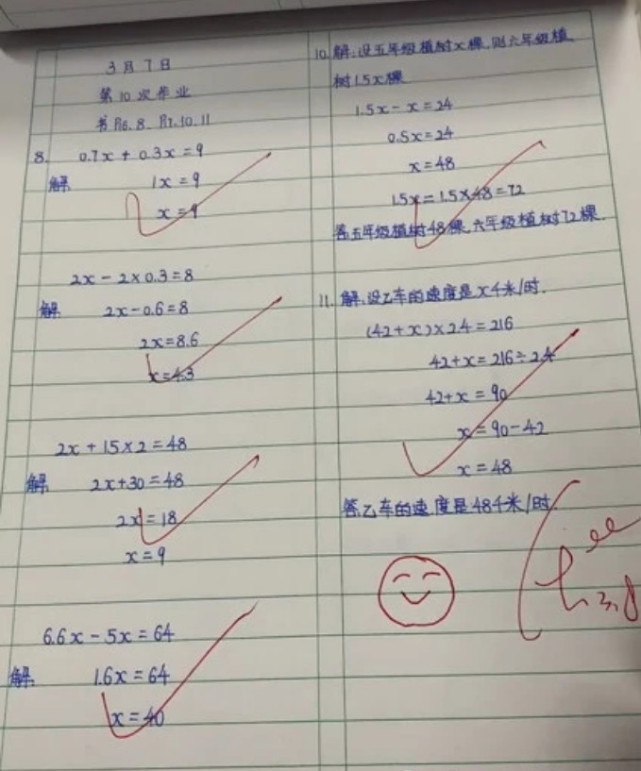 3月7日
第10次作业
书P6.8. P7.10.11
8. 0.7x + 0.3x = 9
解. 1x = 9
x = 9
2x - 2×0.3 = 8
解. 2x - 0.6 = 8
2x = 8.6
x = 4.3
2x + 15×2 = 48
解. 2x + 30 = 48
2x = 18
x = 9
6.6x - 5x = 64
解. 1.6x = 64
x = 40
10. 解:设五年级植树x棵,则六年级植
树1.5x棵
1.5x - x = 24
0.5x = 24
x = 48
1.5x = 1.5×48 = 72
答五年级植树48棵,六年级植树72棵.
11. 解:设乙车的速度是x千米/时.
(42+x)×2.4 = 216
42+x = 216÷2.4
42+x = 90
x = 90-42
x = 48
答乙车的速度是48千米/时.